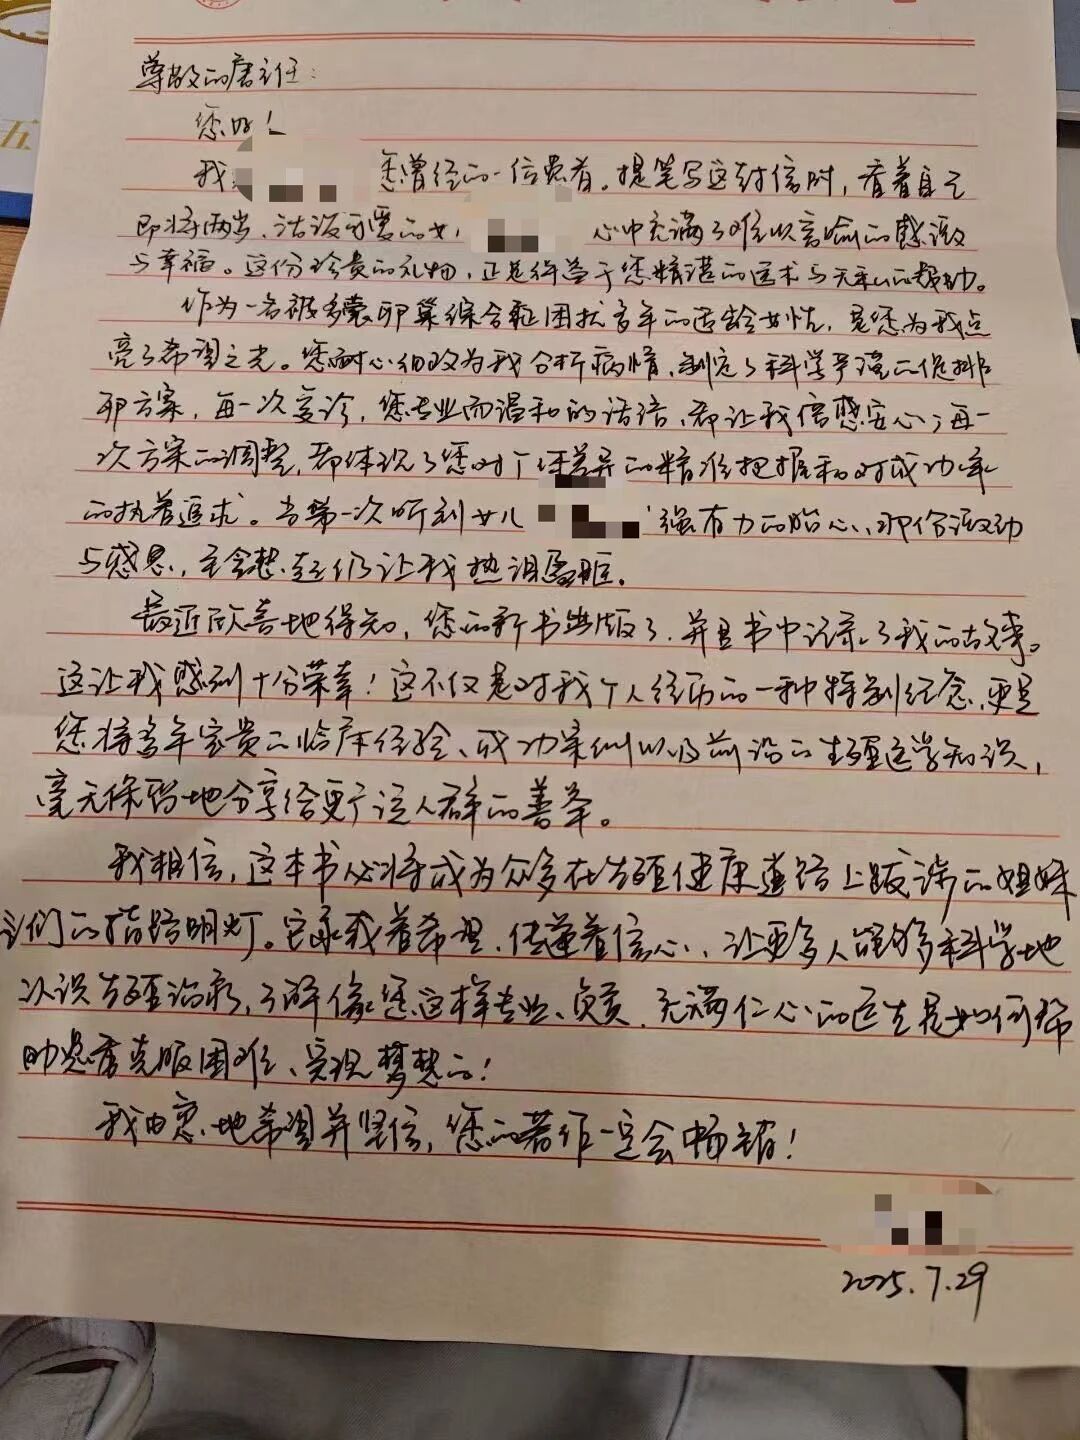 尊敬的唐主任：
您好！
我 您曾经的一位患者。提笔写这封信时，看着自己
即将两岁、活泼可爱的女 心中充满了难以言喻的感激
与幸福。这份珍贵的礼物，正是得益于您精湛的医术与无私的帮助。
作为一名被多囊卵巢综合征困扰多年的适龄女性，是您为我点
亮了希望之光。您耐心细致为我分析病情，制定了科学严谨的促排
卵方案，每一次复诊，您专业而温和的话语，都让我倍感安心；每一
次方案的调整，都体现了您对个体差异的精准把握和对成功率
的执着追求。当第一次听到女儿 强有力的胎心，那份激动
与感恩，至今想起仍让我热泪盈眶。
最近欣喜地得知，您的新书出版了，并且书中记录了我的故事。
这让我感到十分荣幸！这不仅是对我个人经历的一种特别纪念，更是
您将多年宝贵的临床经验、成功案例以及前沿的生殖医学知识，
毫无保留地分享给更广泛人群的善举。
我相信，这本书必将成为众多在生殖健康道路上跋涉的姐妹
们的指路明灯。它承载着希望，传递着信心，让更多人能够科学地
认识生殖治疗，了解像您这样专业、负责、充满仁心的医生是如何帮
助患者克服困难、实现梦想的！
我由衷地希望并坚信，您的著作一定会畅销！
2025.7.29
五